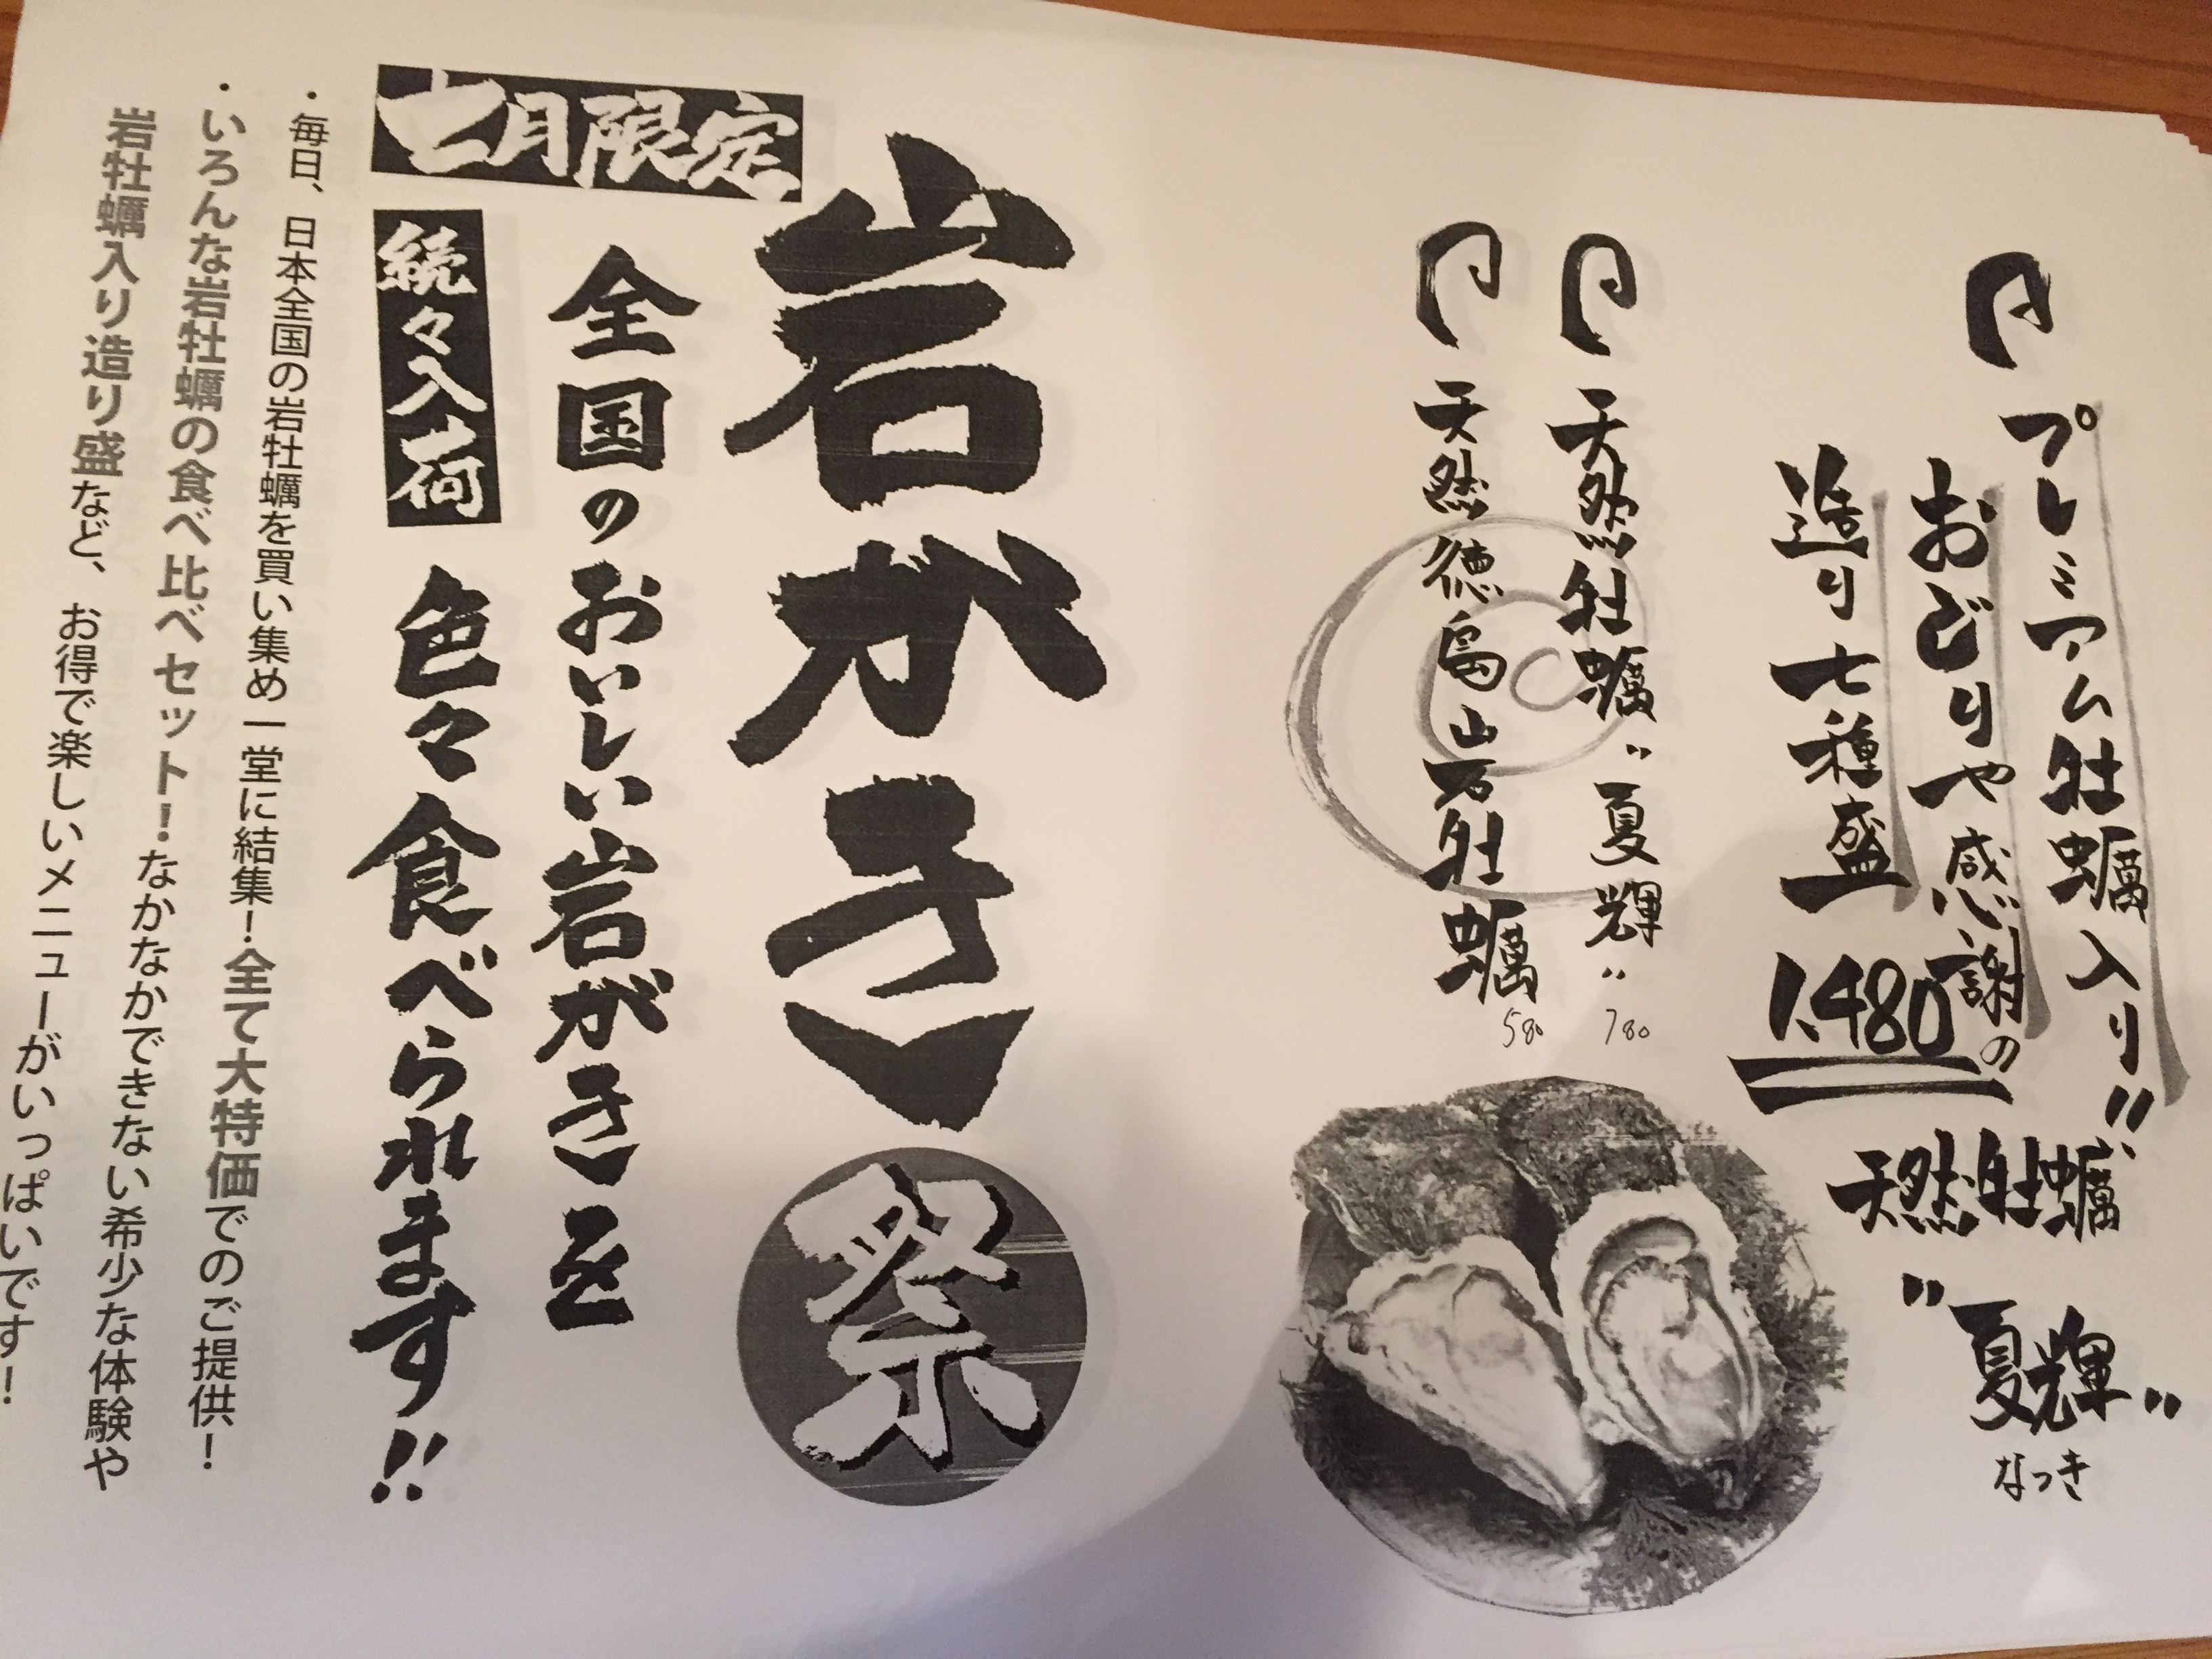 プレミアム牡蠣入り!!
おどりや感謝の
造り七種盛
1,480
天然牡蠣
"夏輝"
なつき
天然牡蠣"夏輝" 780
天然徳島山万牡蠣 580
岩がき祭
七月限定
全国のおいしい岩がきを
続々入荷
色々食べられます!!
・毎日、日本全国の岩牡蠣を買い集め一堂に結集！全て大特価でのご提供！
・いろんな岩牡蠣の食べ比べセット！なかなかできない希少な体験や
岩牡蠣入り造り盛など、お得で楽しいメニューがいっぱいです！